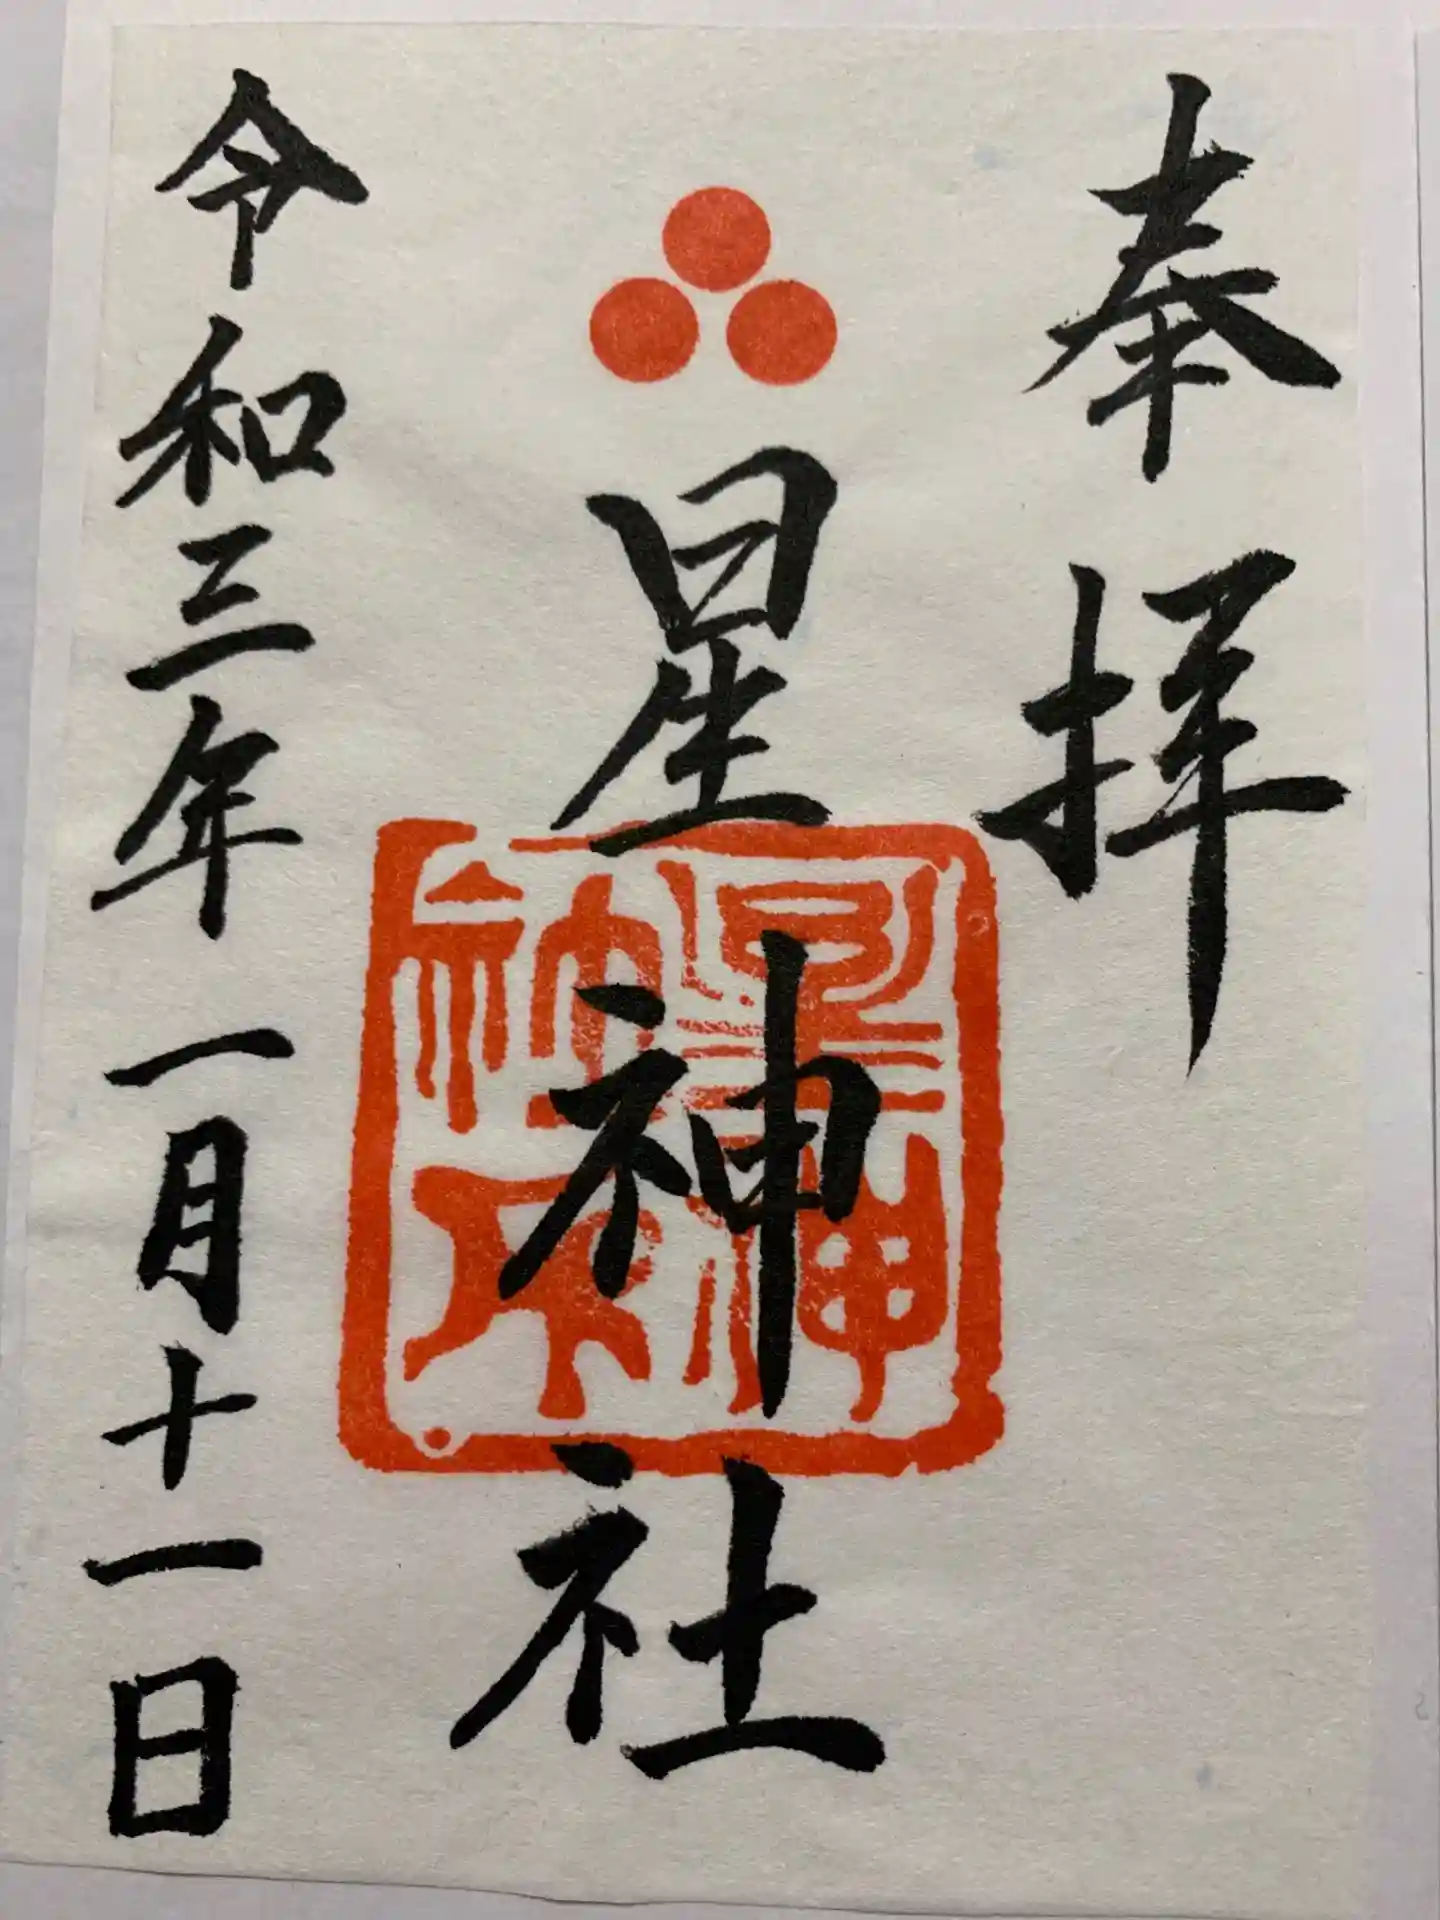 奉拝
星神社
星神社印
令和三年一月十一日